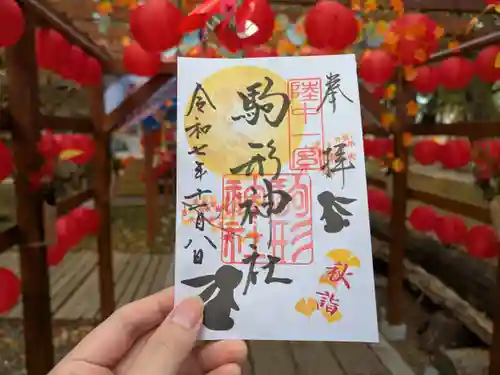 奉拝
陸中一宮
駒形神社
駒形
神社
令和七年十一月八日
秋詣